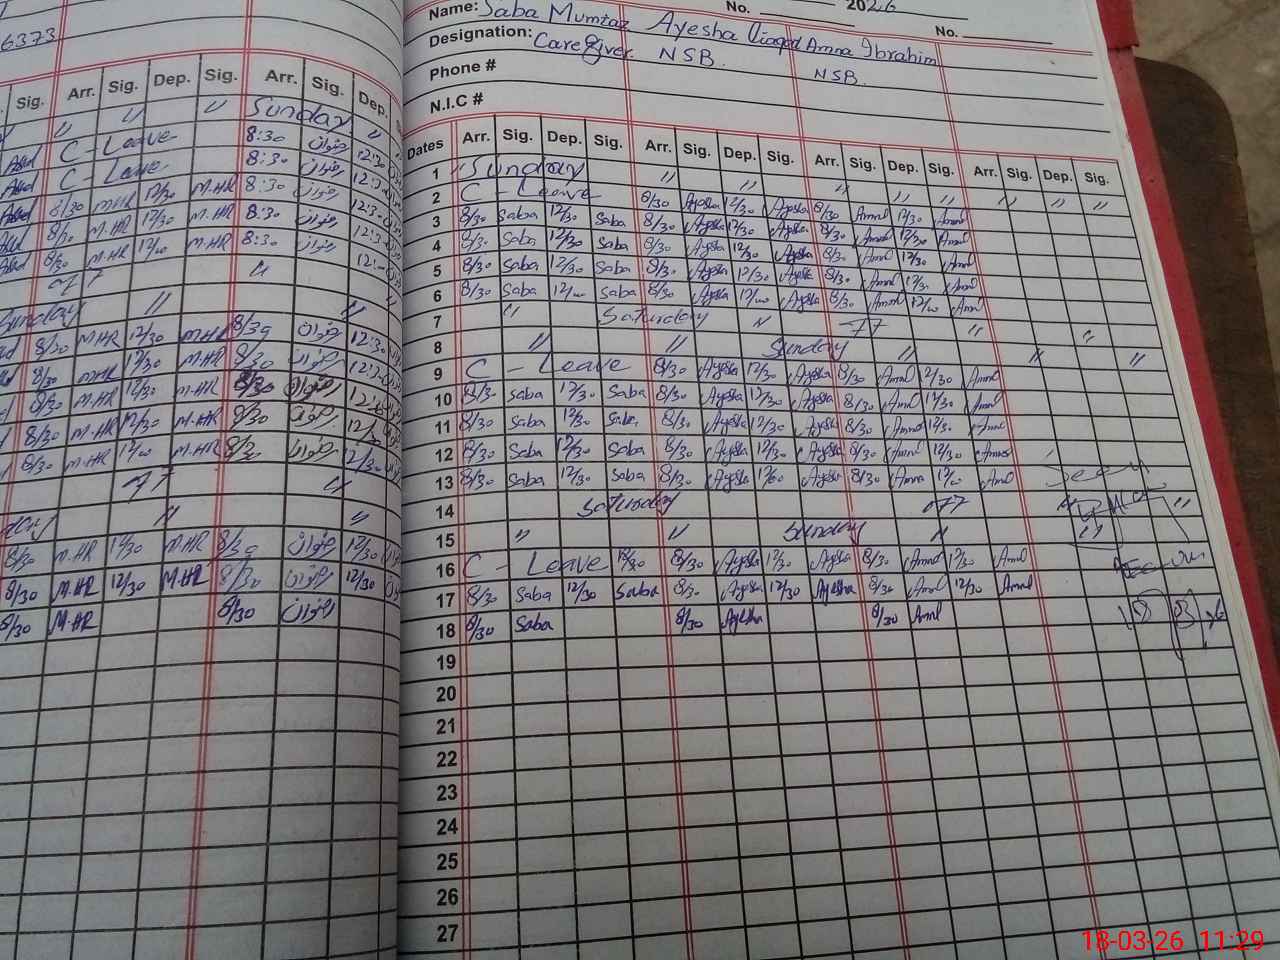 6373
Sig. Arr. Sig. Dep. Sig. Arr. Sig. Dep.
" " " Sunday "
C - Leave 8:30 رضوان 12:30
C - Leave 8:30 رضوان 12:30
8/30 M.HR 12/30 M.HR 8:30 رضوان 12:30
8/30 M.HR 12/30 M.HR 8:30 رضوان 12:30
8/30 M.HR 12/00 M.HR 8:30 رضوان
77 "
Sunday " "
8/30 M.HR 12/30 M.HR 8/30 رضوان 12:30
8/30 M.HR 12/30 M.HR 8/30 رضوان
8/30 M.HR 12/30 M.HR 8/30 رضوان
8/30 M.HR 12/30 M.HR 8/30 رضوان 12/30
8/30 M.HR 12/00 M.HR 8/30 رضوان 12/30
77 "
" "
8/30 M.HR 12/30 M.HR 8/30 رضوان 12/30
8/30 M.HR 12/30 M.HR 8/30 رضوان 12/30
8/30 M.HR 8/30 رضوان
No. 2026
Name: Saba Mumtaz Ayesha Liaqed Amna Ibrahim No.
Designation: CareGiver. NSB. NSB
Phone #
N.I.C #
Dates Arr. Sig. Dep. Sig. Arr. Sig. Dep. Sig. Arr. Sig. Dep. Sig. Arr. Sig. Dep. Sig.
1 " Sunday " " " " " " " "
2 C - Leave 8/30 Ayesha 12/30 Ayesha 8/30 Amnl 12/30 Amnl
3 8/30 Saba 12/30 Saba 8/30 Ayesha 12/30 Ayesha 8/30 Amnl 12/30 Amnl
4 8/30 Saba 12/30 Saba 8/30 Ayesha 12/30 Ayesha 8/30 Amnl 12/30 Amnl
5 8/30 Saba 12/30 Saba 8/30 Ayesha 12/30 Ayesha 8/30 Amnl 12/30 Amnl
6 8/30 Saba 12/00 Saba 8/30 Ayesha 12/00 Ayesha 8/30 Amnl 12/00 Amnl
7 " Saturday " 77 " "
8 " " Sunday " " "
9 C - Leave 8/30 Ayesha 12/30 Ayesha 8/30 Amnl 12/30 Amnl
10 8/30 Saba 12/30 Saba 8/30 Ayesha 12/30 Ayesha 8/30 Amnl 12/30 Amnl
11 8/30 Saba 12/30 Saba 8/30 Ayesha 12/30 Ayesha 8/30 Amnl 12/30 Amnl
12 8/30 Saba 12/30 Saba 8/30 Ayesha 12/30 Ayesha 8/30 Amnl 12/30 Amnl
13 8/30 Saba 12/30 Saba 8/30 Ayesha 12/00 Ayesha 8/30 Amna 12/00 Amnl
14 Saturday 77 " "
15 " " Sunday " "
16 C - Leave 12/30 8/30 Ayesha 12/30 Ayesha 8/30 Amnl 12/30 Amnl
17 8/30 Saba 12/30 Saba 8/30 Ayesha 12/30 Ayesha 8/30 Amnl 12/30 Amnl
18 8/30 Saba 8/30 Ayesha 8/30 Amnl
19
20
21
22
23
24
25
26
27
Seen
18 3 26
18-03-26 11:29